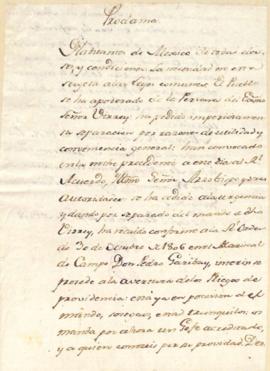 Proclama
Habitantes de Mexico de todas clases
y condiciones: La necesidad no esta
sujeta a las Leyes comunes. El Pueblo
se ha apoderado de la Persona del Exmo.
Señor Virrey: ha pedido imperiosamente
su separacion por razones de utilidad y
conveniencia general: han convocado
en la noche precedente a este dia al Rl.
Acuerdo, Illmo. Señor Arzobispo y otras
Autoridades: se ha cedido a la urgencia
y dando por separado del mando a dho
Virrey, ha recaido conforme a la Rl. Orden
de 30 de Octubre de 1806 en el Mariscal
de Campo Don Pedro Garibay, interin se
procede a la avertura de los Pliegos de
providencia: está ya en posesion de el
mando; sosegaos, estad tranquilos: os
manda por ahora un Gefe acreditado,
y a quien conoceis por su providad. Des